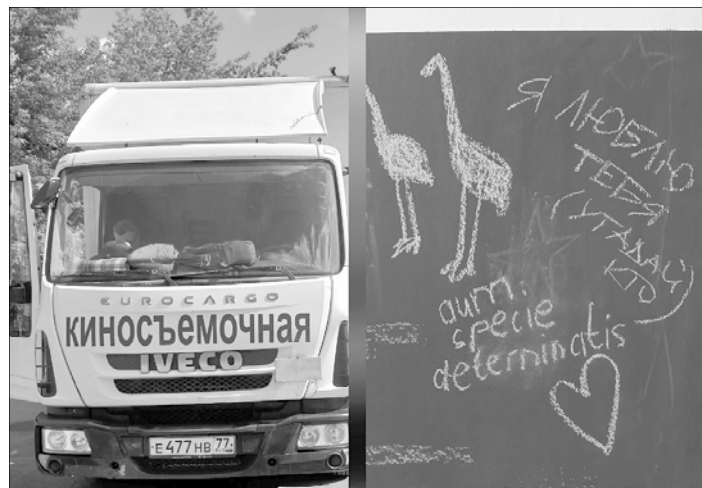 EUROCARGO
КИНОСЪЕМОЧНАЯ
IVECO
Е 477 НВ 77
Я ЛЮБЛЮ
ТЕБЯ
(УГАДАЙ
КТО)
aum.
specie
determinatis